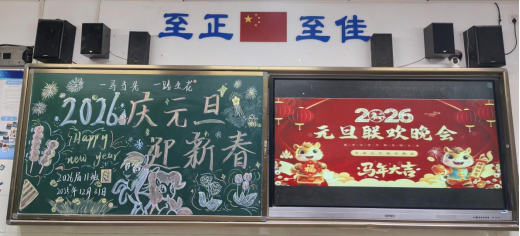 至正 至佳
一马当先 一路生花
2026庆元旦
迎新春
Happy
new year
2026届11班
2025年12月31日
2026
元旦联欢晚会
马年大吉
福